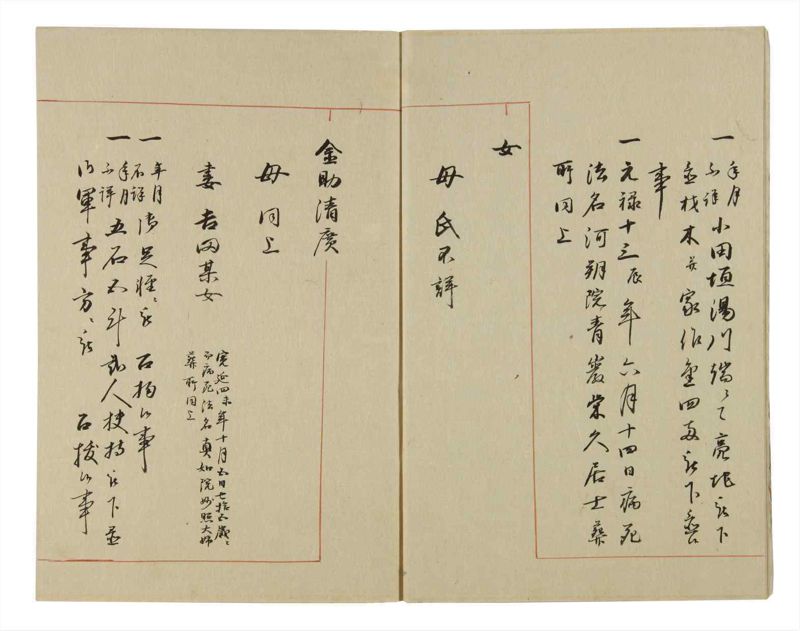 一 年月不詳 小田垣湯川端ニて亮地被下
並材木并家作金四両被下置候
事
一 元禄十三辰年六月十四日病死
法名河朔院青巖栄久居士葬
所同上
女
母氏不詳
金助清廣
母同上
妻 吉田某女
寛延四未年十月五日七拾五歳ニ
而病死法名真如院妙照大姉
葬所同上
一 年月不詳 御足軽ニ被 召抱候事
一 年月不詳 五石五斗 弐人扶持被下並
御軍事方ニ被 召抜候事